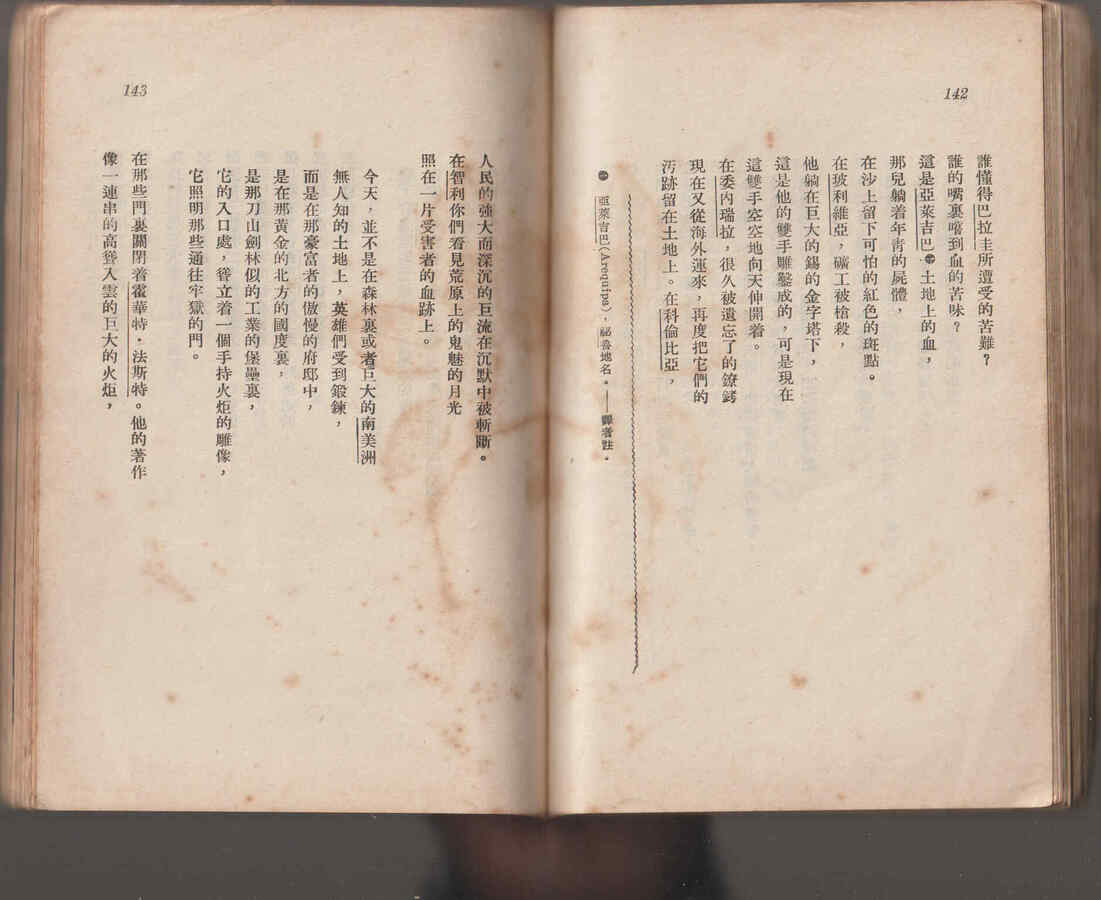 142
誰懂得巴拉圭所遭受的苦難？
誰的嘴裏嚐到血的苦味？
這是亞萊吉巴㊀土地上的血，
那兒躺着年青的屍體，
在沙上留下可怕的紅色的斑點。
在玻利維亞，礦工被槍殺，
他躺在巨大的錫的金字塔下，
這是他的雙手雕鑿成的，可是現在
這雙手空空地向天伸開着。
在委內瑞拉，很久被遺忘了的鐐銬
現在又從海外運來，再度把它們的
污跡留在土地上。在科倫比亞，
㊀ 亞萊吉巴(Arequipa)，祕魯地名。——譯者註。
143
人民的強大而深沉的巨流在沉默中被斬斷。
在智利你們看見荒原上的鬼魅的月光
照在一片受害者的血跡上。
今天，並不是在森林裏或者巨大的南美洲
無人知的土地上，英雄們受到鍛鍊，
而是在那豪富者的傲慢的府邸中，
是在那黃金的北方的國度裏，
是那刀山劍林似的工業的堡壘裏，
它的入口處，聳立着一個手持火炬的雕像，
它照明那些通往牢獄的門。
在那些門裏關閉着霍華特·法斯特。他的著作
像一連串的高聳入雲的巨大的火炬，